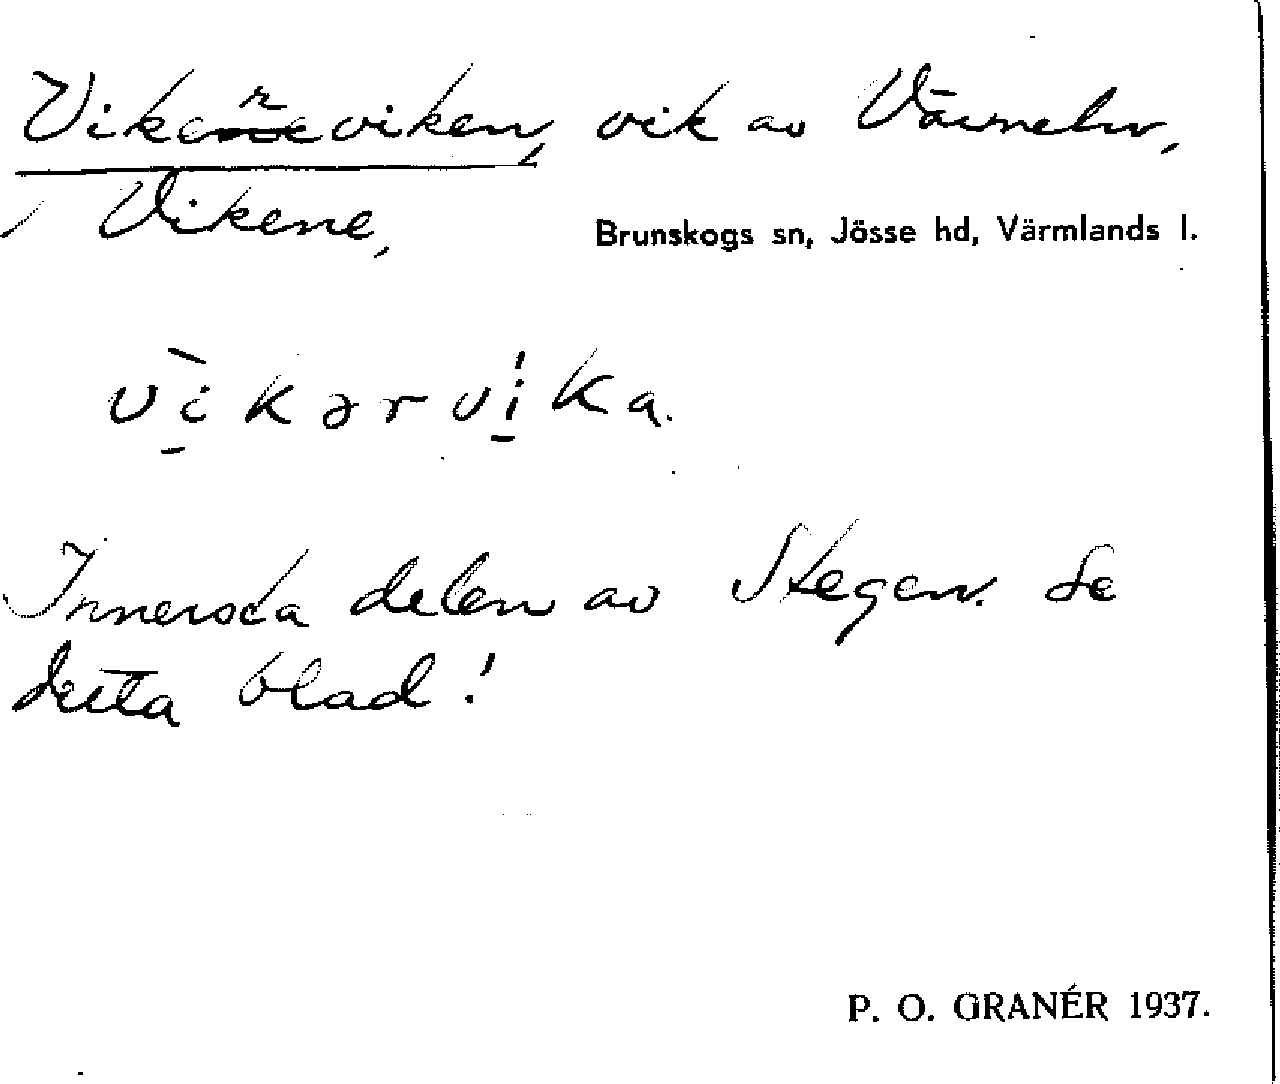 Vikerviken, vik av Värmeln,
Vikene, Brunskogs sn, Jösse hd, Värmlands l.
vìkərvi̱ka.
Innersta delen av Stegen. Se
detta blad!
P. O. GRANÉR 1937.